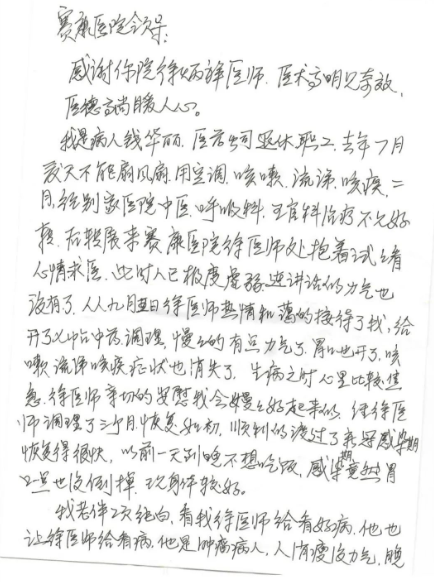 赛康医院领导:
感谢你院徐炳祥医师,医术高明见奇效,
医德高尚暖人心。
我是病人钱华丽,医药公司退休职工,去年7月
夏天不能扇风扇,用空调,咳嗽,流涕,咳痰,二
月,经别家医院中医,呼吸科,五官科治疗不见好
转,后辗转来赛康医院徐医师处抱着试试看
心情求医,此时人已极度虚弱,连讲话的力气也
没有了,从九月 徐医师热情和蔼的接待了我,给
开了 中药调理,慢慢的有点力气了,胃口也开了,咳
嗽流涕咳痰症状也消失了,生病之时心里比较焦
急,徐医师亲切的安慰我会慢慢好起来的,经徐医
师调理了三个月,恢复如初,顺利的渡过了 感染期
恢复得很快,以前一天到晚不想吃饭,感染期竟然胃
口一点也没倒掉,现身体较好。
我老伴 纯白,看我徐医师给看好病,他也
让徐医师给看病,他是肿瘤病人,人消瘦没力气,晚